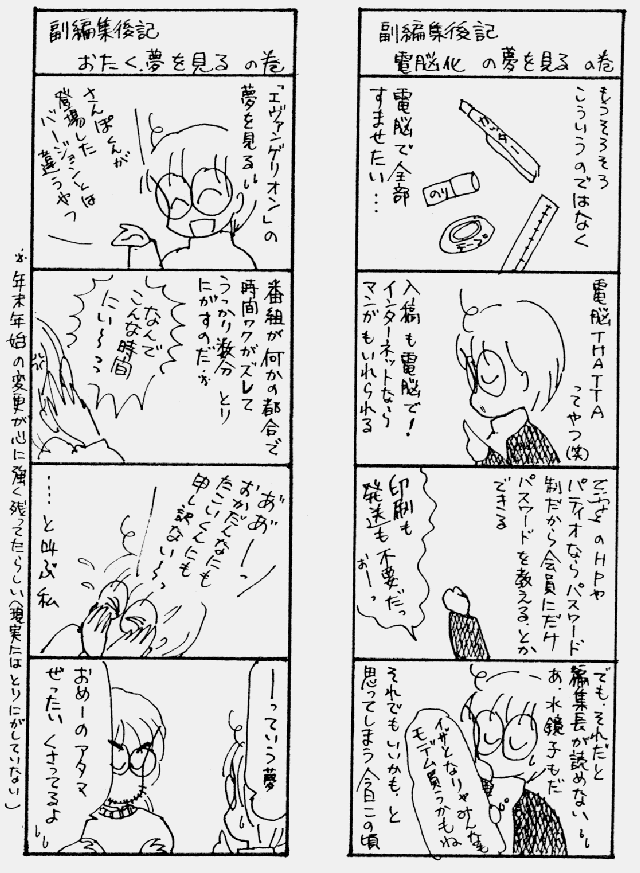 副編集後記
電脳化 の夢を見る の巻
もうそろそろ
こういうのではなく
電脳で全部
すませたい…
カッター
のり
テープ
電脳THATTA
ってやつ(笑)
入稿も電脳で！
インターネットなら
マンガもいれられる
のHPや
パティオならパスワード
制だから会員にだけ
パスワードを教える、とか
できる
印刷も
発送も不要だっ
おーっ
でも、それだと
編集長が読めない〜
あ、水鏡子もだ
イザとなりゃみんな
モデム買うかもね
それでもいいかも、と
思ってしまう今日この頃
副編集後記
おたく、夢を見る の巻
「エヴァンゲリオン」の
夢を見る
さんぽくんが
登場した
バージョンとは
違うやつ
番組が何かの都合で
時間ワクがズレて
うっかり数分 とり
にがすのだ※
なんで
こんな時間
にぃ〜〜っっ
あ゛あ゛ーっ
おかだんなにも
たこいくんにも
申し訳ない〜〜
……と叫ぶ私
ーっていう夢
おめーのアタマ
ぜったいくさってるよ
※年末年始の変更が心に強く残ってたらしい(現実にはとりにがしていない)